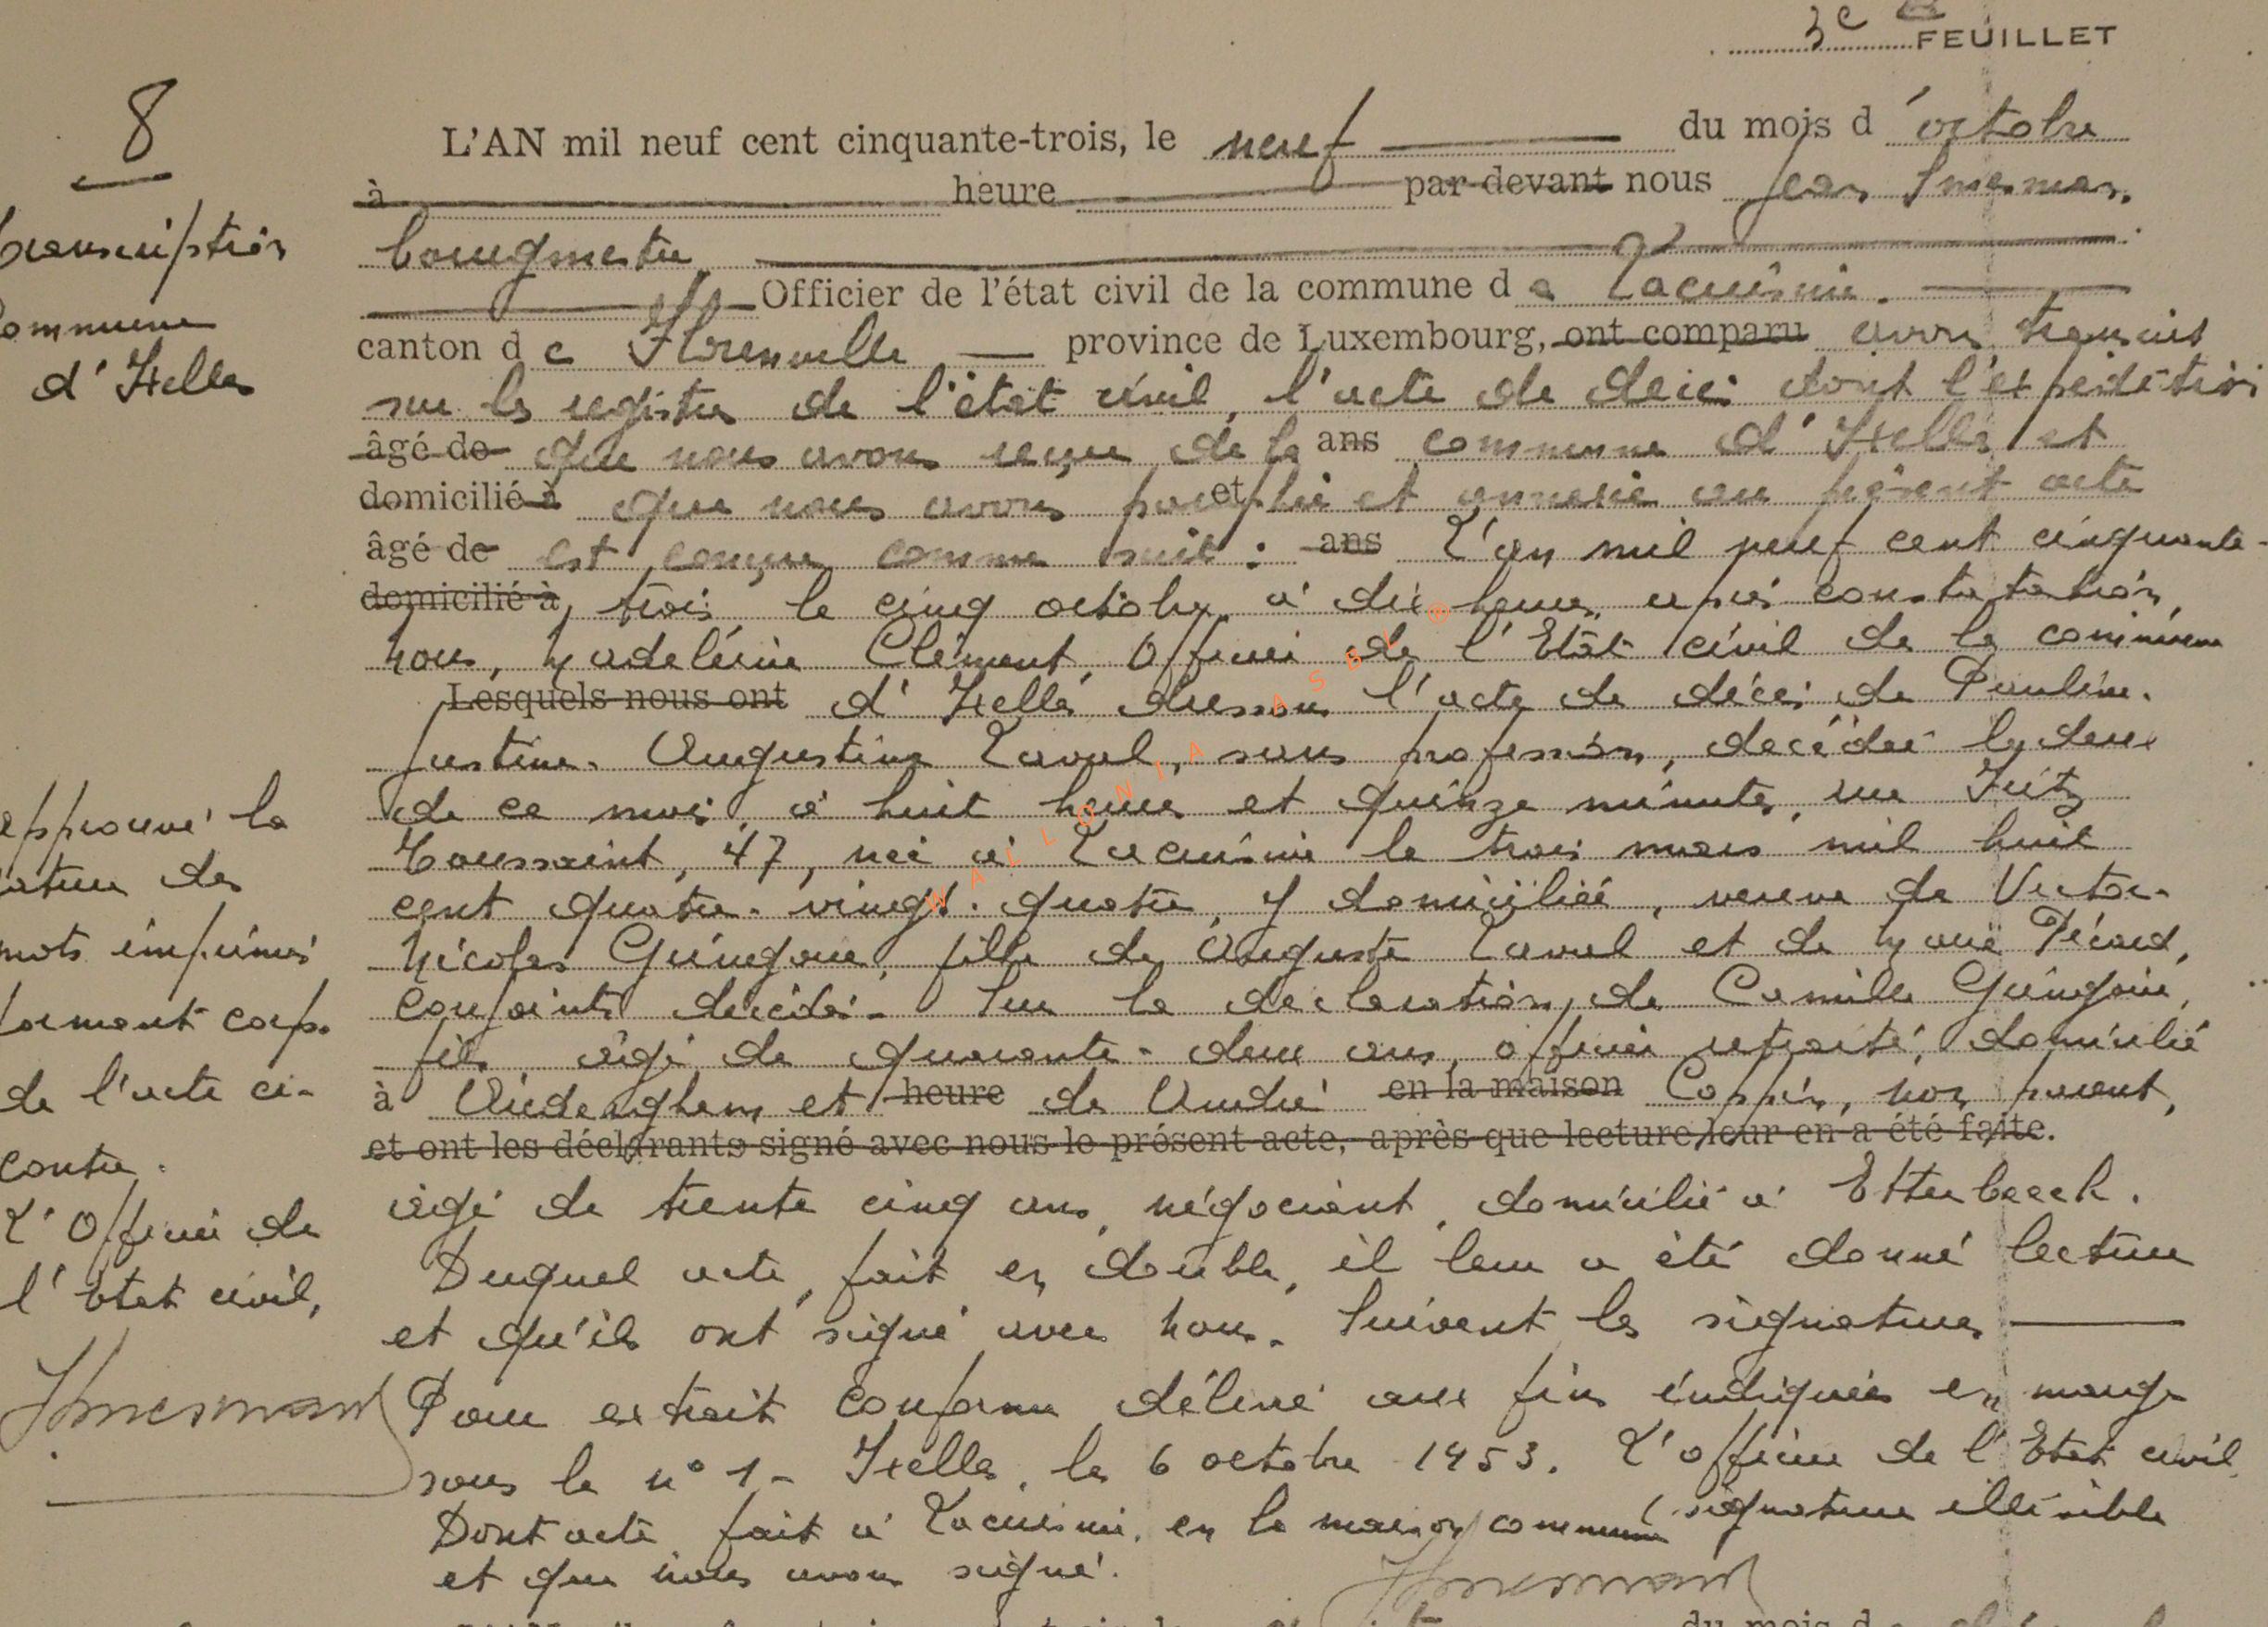 3e FEUILLET
8
L'AN mil neuf cent cinquante-trois, le neuf du mois d'octobre
à heure par devant nous Jean Smesman,
Transcription
bourgmestre,
Officier de l'état civil de la commune de Lacuisine.
Commune
d'Ixelles
canton de Florenville province de Luxembourg, ont comparu avons transcrit
sur les registres de l'état civil, l'acte de décès dont l'expédition
âgé de que nous avons reçue de la ans commune d'Ixelles et
domicilié à que nous avons paraphée et et annexée au présent acte
âgé de est conçue comme suit : ans L'an mil neuf cent cinquante-
domicilié à, trois le cinq octobre à dix heures, après constatation,
nous, Madeleine Clément, Officier de l'Etat civil de la commune
Lesquels nous ont d'Ixelles dressons l'acte de décès de Pauline-
Justine-Augustine Laval, sans profession, décédée le deux
de ce mois, à huit heures et quinze minutes, rue Fritz
Toussaint, 47, née à Lacuisine le trois mars mil huit
cent quatre-vingt-quatre, y domiciliée, veuve de Victor-
Nicolas Guingoire, fille de Auguste Laval et de Marie Pécard,
conjoints décédés. Sur la déclaration de Camille Guingoire,
fils, âgé de quarante-deux ans, officier retraité, domicilié
à Auderghem et heure de André en la maison Coppin, non parent,
et ont les déclarants signé avec nous le présent acte, après que lecture leur en a été faite.
âgé de trente cinq ans, négociant, domicilié à Etterbeeck.
Duquel acte, fait en double, il leur a été donné lecture
et qu'ils ont signé avec nous. Suivent les signatures
Pour extrait conforme délivré aux fins indiquées en marge
sous le n° 1- Ixelles, le 6 octobre 1953. L'officier de l'Etat civil
(signature illisible
Dont acte fait à Lacuisine, en la maison commune
et que nous avons signé.
Smesman
approuvé la
rature des
mots imprimés
formant corps
de l'acte ci-
contre.
L'Officier de
l'Etat civil,
Smesman
WALLONIA ASBL ®
du mois d